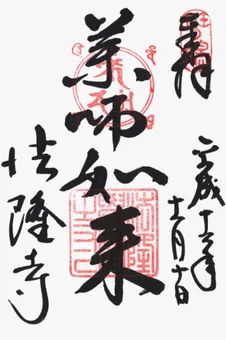 奉拝
平成十 年
月十日
薬師如来
法隆寺